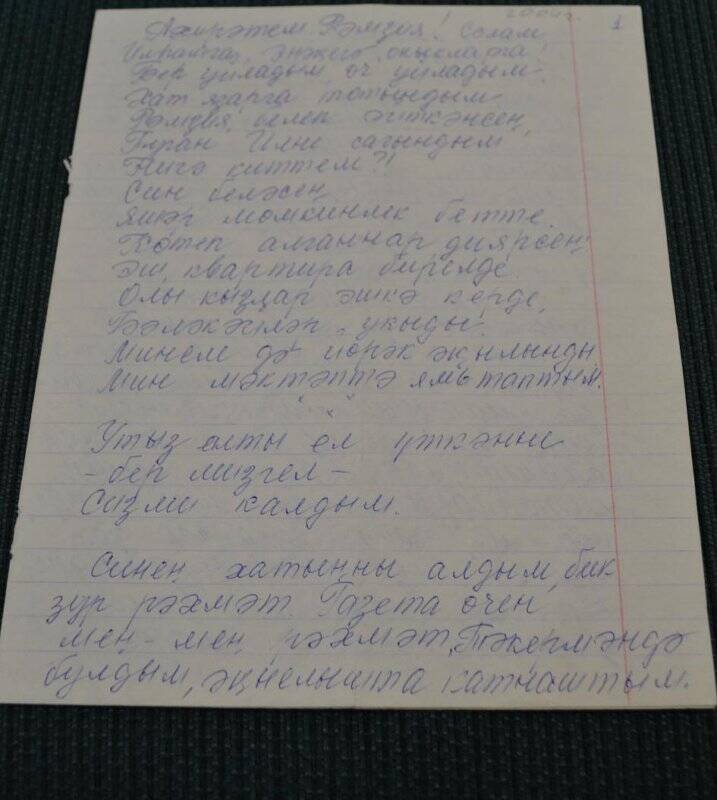 2004г. 1
Ахирәтем Рәмзия! Сәлам
Илрамга, энекәш, оныкларга!
Бер уйладым, өч уйладым,
Хат язарга тотындым
Рәмзия, белеп әйткәнсең,
Туган Илне сагындым
Нигә киттем?!
Син беләсең
Яшәү мөмкинлек бетте.
Көтеп алганнар диярсең:
Эш, квартира бирелде.
Олы кызлар эшкә керде,
Бәләкәйләр укыды.
Минем дә йөрәк әҗылынды
Мин мәктәптә ямь таптым.
Утыз алты ел үткәнне
- бер мизгел -
Сизми калдым.
Синең хатыңны алдым, бик
зур рәхмәт. Газета өчен
мең-мең рәхмәт. Тәкермәндә
булдым, әңнелештә катнаштым.